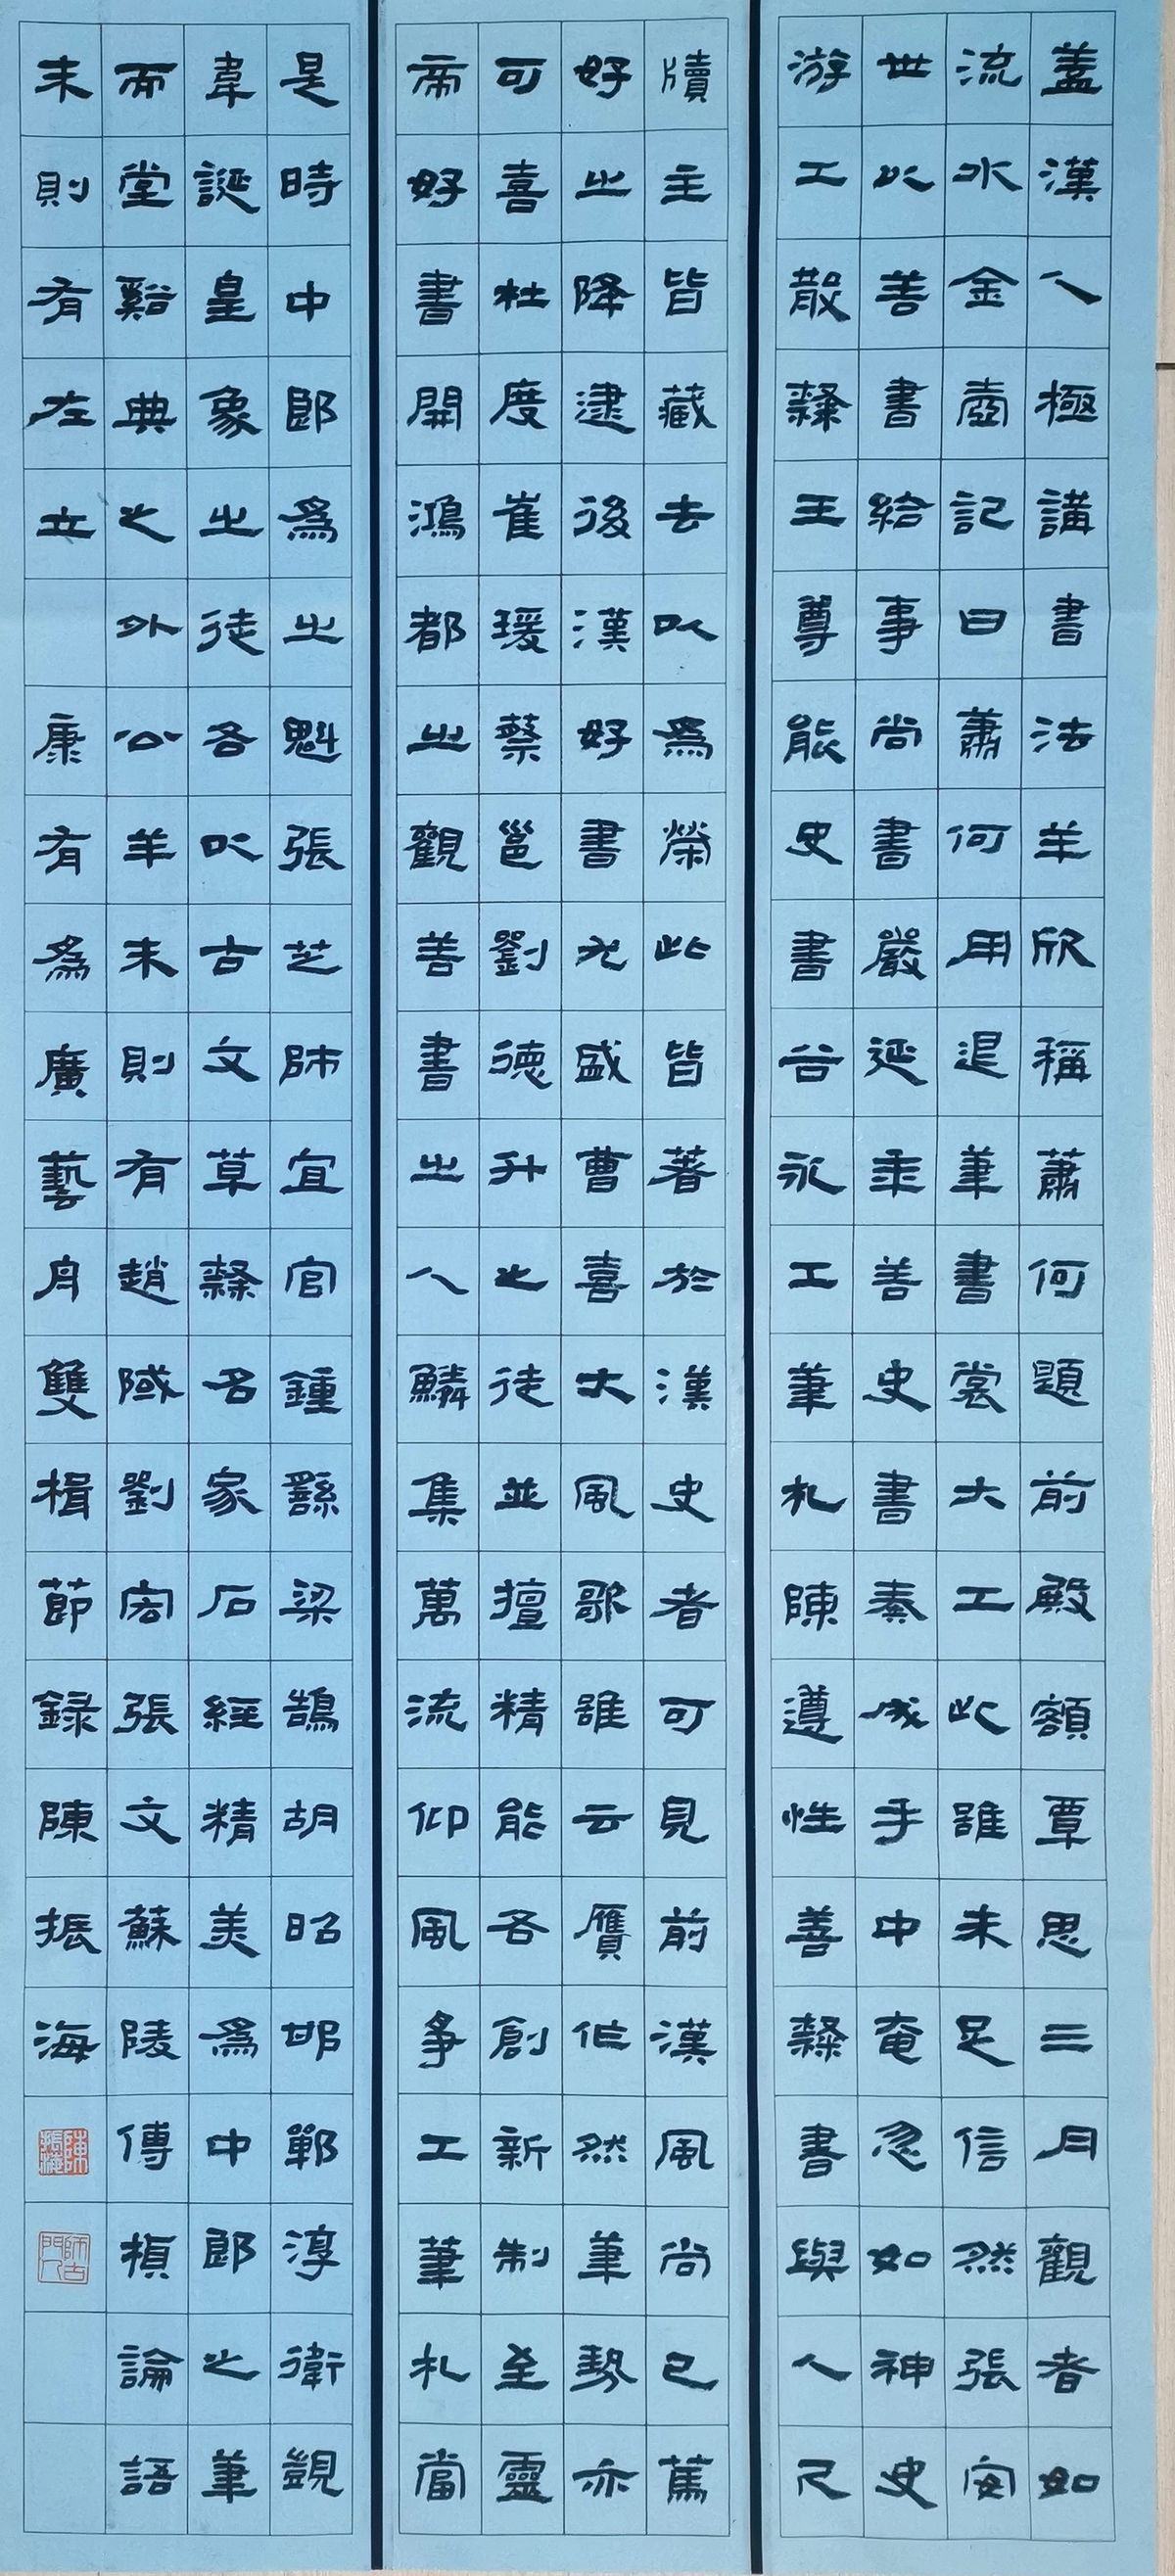 蓋漢人極講書法羊欣稱蕭何題前殿額覃思三月觀者如
流水金壺記曰蕭何用退筆書裳大工此雖未足信然張安
世以善書給事尚書嚴延年善史書奏成手中奄忽如神史
游工散隸王尊能史書谷永工筆札陳遵性善隸書與人尺
牘主皆藏去以為榮此皆著於漢史者可見前漢風尚已篤
好之降逮後漢好書尤盛曹喜大風歌雖云贋作然筆勢亦
可喜杜度崔瑗蔡邕劉德升之徒並擅精能各創新制至靈
帝好書開鴻都之觀善書之人鱗集萬流仰風爭工筆札當
是時中郎為之魁張芝師宜官鍾繇梁鵠胡昭邯鄲淳衛覬
韋誕皇象之徒各以古文草隸名家石經精美為中郎之筆
而堂谿典之外公羊末則有趙陚劉宏張文蘇陵傅楨論語
末則有左立　康有為廣藝舟雙楫節錄陳振海
陳振海
師古門人